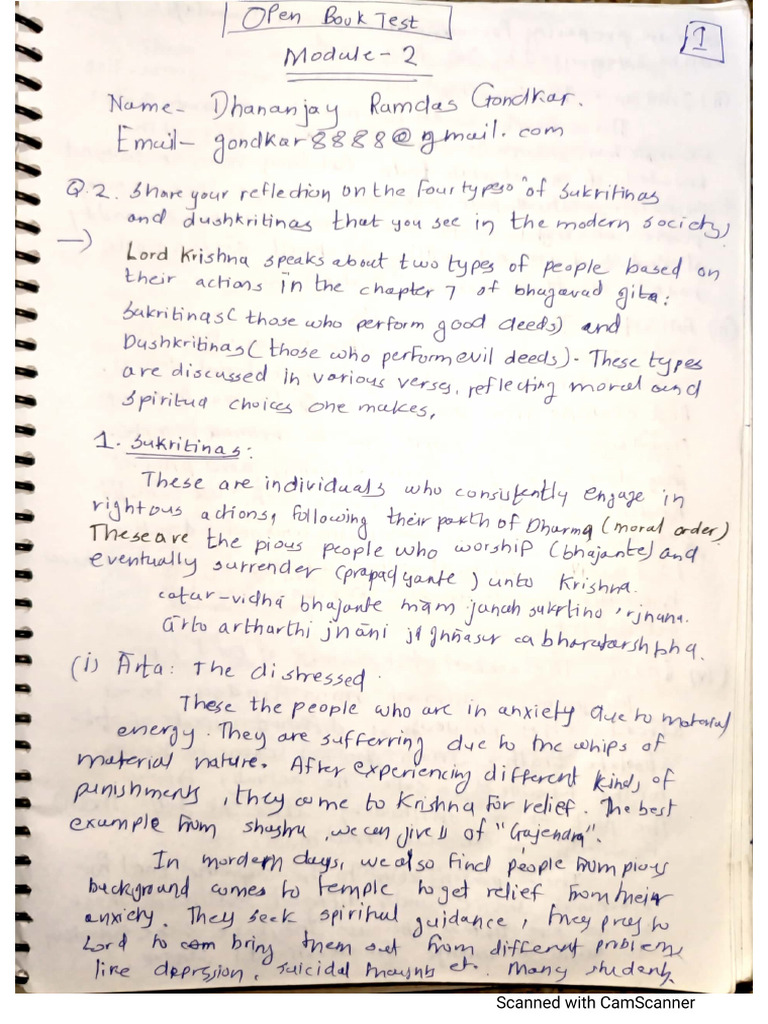 Open Book Test
1
Module - 2
Name - Dhananjay Ramdas Gondkar.
Email - gondkar8888@gmail.com
Q.2. Share your reflection on the four types of sukritinas
and dushkritinas that you see in the modern society,
→ Lord Krishna speaks about two types of people based on
their actions in the chapter 7 of bhagavad gita:
Sukritinas (those who perform good deeds) and
Dushkritinas (those who perform evil deeds). These types
are discussed in various verses, reflecting moral and
spiritua choices one makes,
1. Sukritinas:
These are individuals who consistently engage in
rightous actions, following their path of Dharma (moral order)
These are the pious people who worship (bhajante) and
eventually surrender (prapadyante) unto Krishna.
catur-vidhā bhajante mām janah sukrtino 'rjnana.
ārto artharthi jnāni jignāasur ca bharatarshbha.
(i) Ārta: The distressed.
These the people who are in anxiety due to material
energy. They are sufferring due to the whips of
material nature. After experiencing different kinds of
punishments, they come to Krishna for relief. The best
example from shastra, we can give is of "Gajendra".
In mordern days, we also find people from pious
background comes to temple to get relief from their
anxiety. They seek spiritual guidance, they prey to
Lord to bring them out from different problems
like deprssion, suicidal et. Many students
Scanned with CamScanner